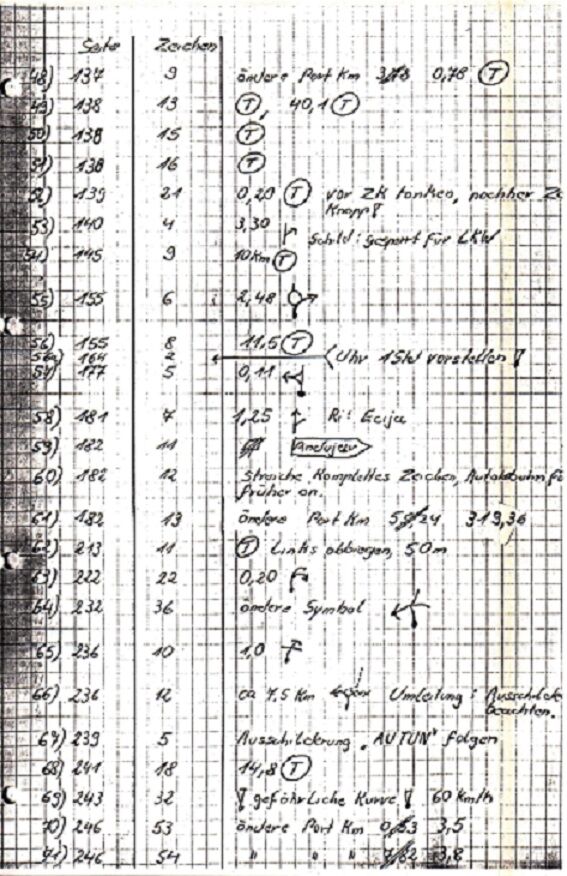 Seite Zeichen
48) 137 9 ändere Part Km 0,78 T
49) 138 13 T 40,1 T
50) 138 15 T
51) 138 16 T
52) 139 21 0,20 T vor ZK tanken, nachher
Knapp!
53) 140 4 3,30 Schild: gesperrt für LKW
54) 145 9 10 Km T
55) 155 6 2,48
56) 155 8 11,5 T
56a) 164 2 Uhr 1 Std vorstellen!
57) 177 5 0,11
58) 181 7 1,25 Ri: Ecija
59) 182 11 Andujesv
60) 182 12 Streiche Komplettes Zeichen, Autobahn
früher an.
61) 182 13 ändere Part Km 313,36
62) 213 11 T Links abbiegen, 50m
63) 222 22 0,20
64) 232 36 ändere Symbol
65) 236 10 1,0
66) 236 12 ca 7,5 Km Umleitung:
beachten.
67) 239 5 Ausschilderung "AUTUN" folgen
68) 241 18 14,8 T
69) 243 32 ! gefährliche Kurve! 60 Km/h
70) 246 53 ändere Part Km 3,5
71) 246 54 " " " 3,8